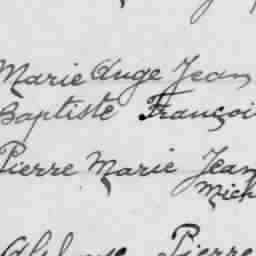 Marie Ange Jean
Baptiste Françoi
Pierre Marie Jean
Mich
Pierre